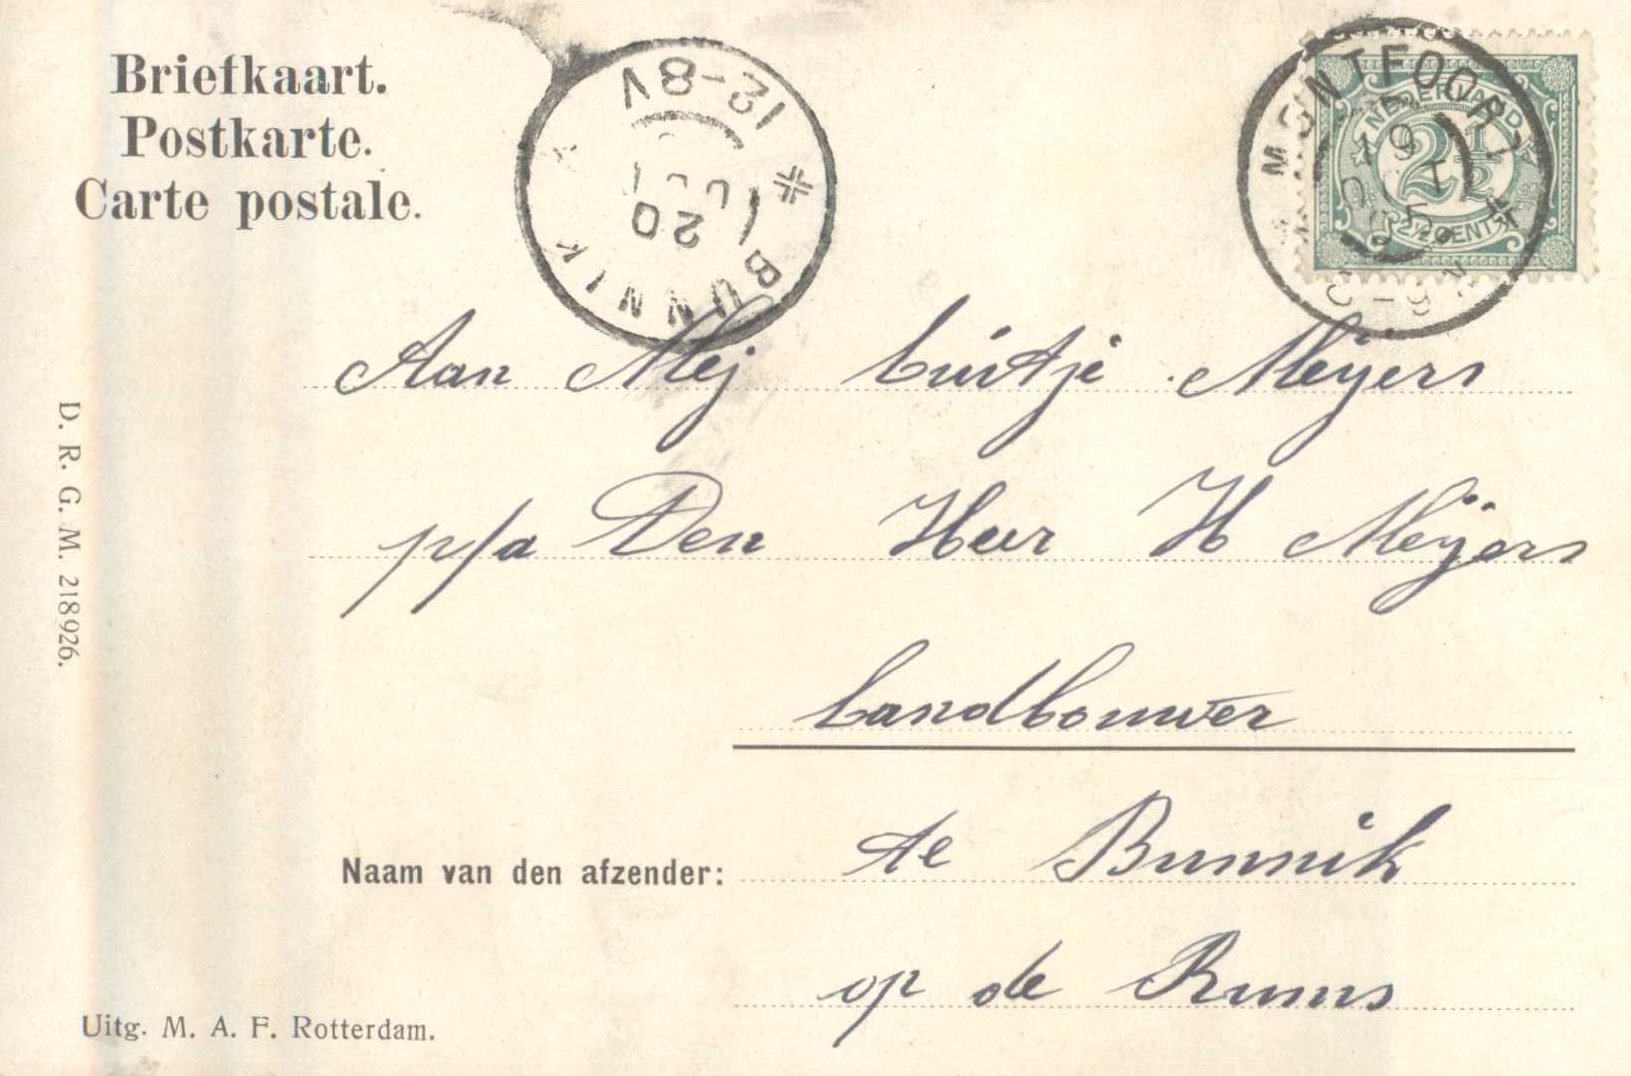 Briefkaart.
Postkarte.
Carte postale.
12-8V
20
BUNNIK
MONTFOORT
19
NEDERLAND
2½
2½ CENT
Aan Mej Cuirtje Meijers
p/a Den Heer H Meijers
Landbouwer
Naam van den afzender: te Bunnik
op de Rums
D. R. G. M. 218926.
Uitg. M. A. F. Rotterdam.